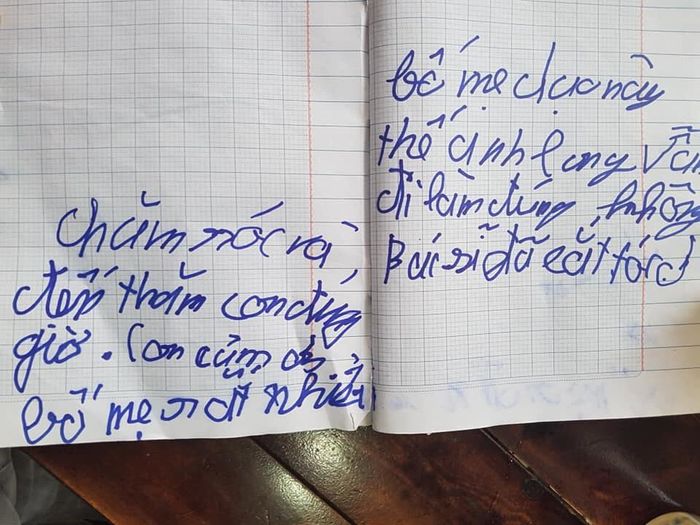 chăm sóc và
đến thăm con đúng
giờ. Con cảm ơn
bố mẹ rất nhiều
bố mẹ dạo này
thế anh long vẫn
đi làm đúng không
Bác sĩ đã cắt tóc